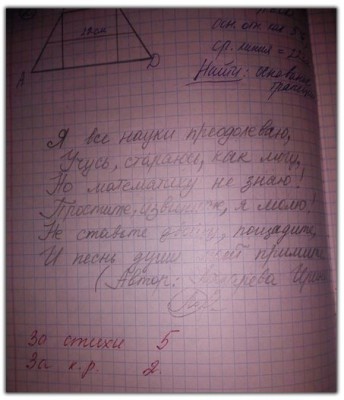 18 см
A
D
осн. отн. как
ср. линия =
Найти: основания
трапеции
Я все науки преодолеваю,
Учусь, стараюсь, как могу,
Но математику не знаю!
Простите, извините, я молю!
Не ставьте двойку, пощадите,
И песнь души
(Автор: Ирина
За стихи 5
За к.р. 2